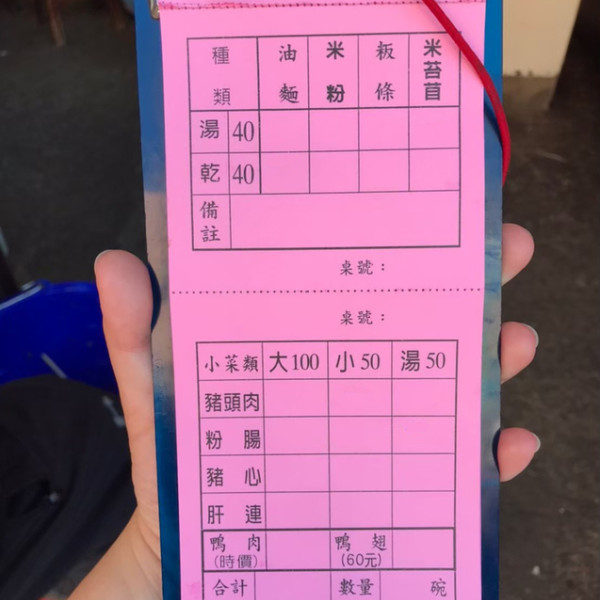 種類 油麵 米粉 粄條 米苔苜
湯 40
乾 40
備註
桌號：
桌號：
小菜類 大100 小50 湯50
豬頭肉
粉腸
豬心
肝連
鴨肉(時價) 鴨翅(60元)
合計 數量 碗